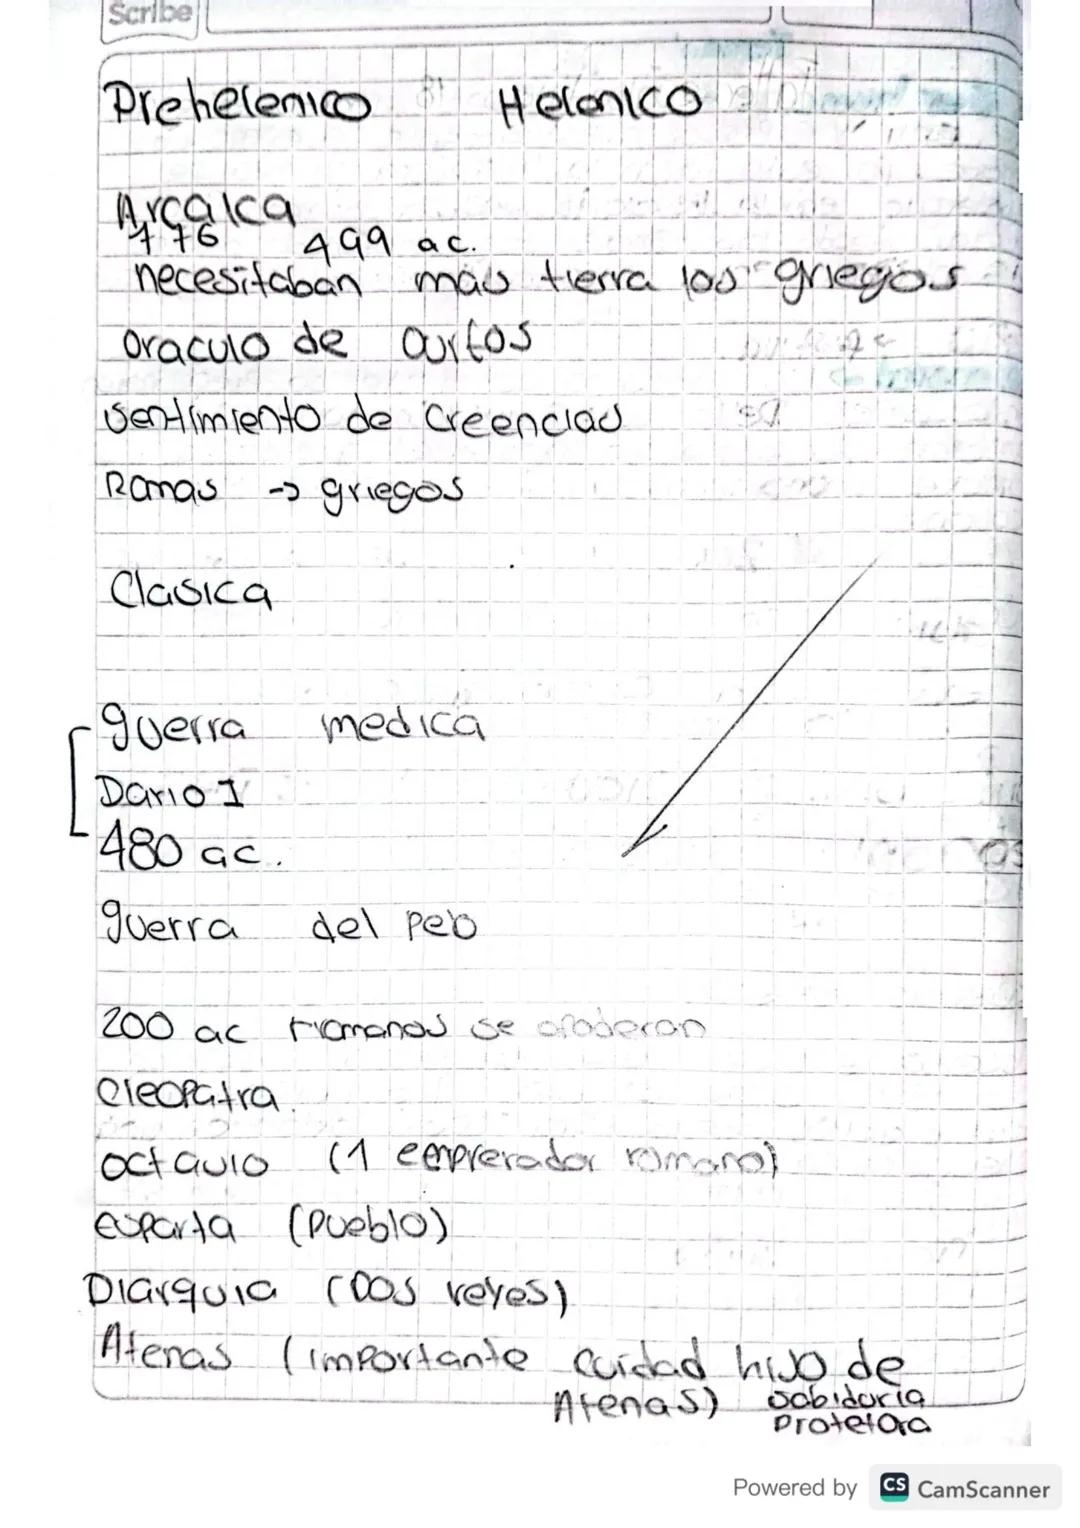 Scribe
Prehelenico Helenico
Arcaica
776 499 ac.
necesitaban mas tierra los griegos
Oraculo de
Sentimiento de Creencias
Romas -> griegos
Clasica
guerra medica
Dario I
480 ac.
guerra del pelo
200 ac romanos se apoderan
Cleopatra.
octavio (1 emprerador romano)
esparta (pueblo)
Diarquia (Dos reyes)
Atenas (importante cuidad hijo de
Atenas) sabiduria
protetora
Powered by CS CamScanner